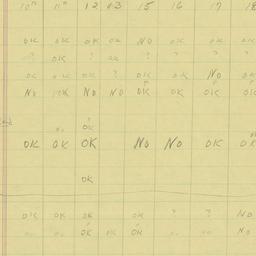 10" 11" 12 13 15 16 17 18
OK OK OK OK NO OK OK OK
? OK ? OK ? ? ? ?
OK OK OK ? OK OK NO OK
NO NO NO OK OK OK OK
NO OK
OK OK OK NO NO OK OK
OK
OK OK OK OK ? ? NO
OK OK OK NO